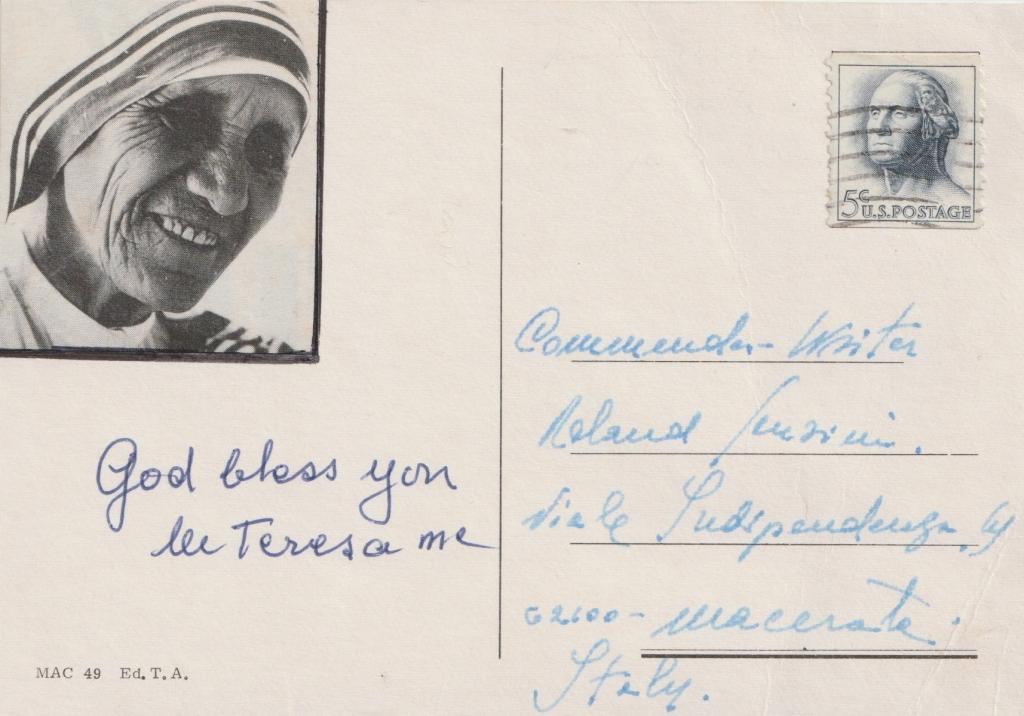 5c
U.S.POSTAGE
God bless you
M Teresa mc
MAC 49 Ed. T. A.
Commander- Writer
Roland
Viale Indipendenza,
62100- Macerata.
Italy.